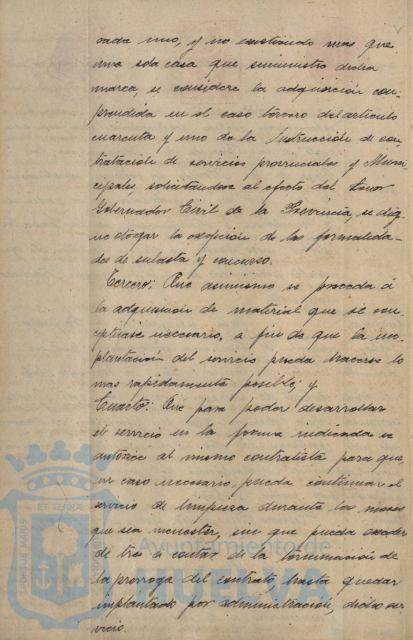 cada uno, y no existiendo mas que
una sola casa que suministre dicha
marca, se considere la adquisición com-
prendida en el caso tercero del articulo
cuarenta y uno de la Instrucción de con-
tratación de servicios provinciales y Muni-
cipales, solicitandose al efecto del Señor
Gobernador Civil de la Provincia, se dig-
ne otorgar la exención de las formalida-
des de subasta y concurso.
Tercero: Que asimismo se proceda á
la adquisición de material que se con-
ceptuase necesario, a fin de que la im-
plantación del servicio pueda hacerse lo
mas rapidamente posible; y
Cuarto: Que para poder desarrollar
el servicio en la forma indicada se
autorice al mismo contratista para que,
en caso necesario, pueda continuar el
servicio de limpieza durante los meses
que sea menester, sin que pueda exceder
de tres a contar de la terminación de
la prorroga del contrato, hasta quedar
implantado por administración, dicho ser-
vicio.
ET TERRÆ
PORTUS MARIS
HUELVA